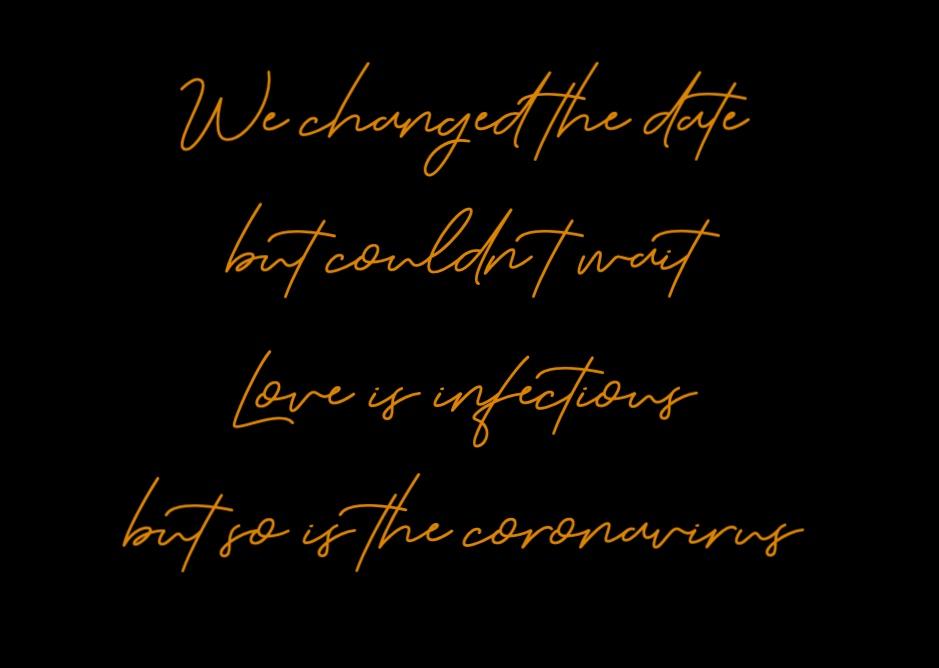 We changed the date
but couldn't wait
Love is infectious
but so is the coronavirus